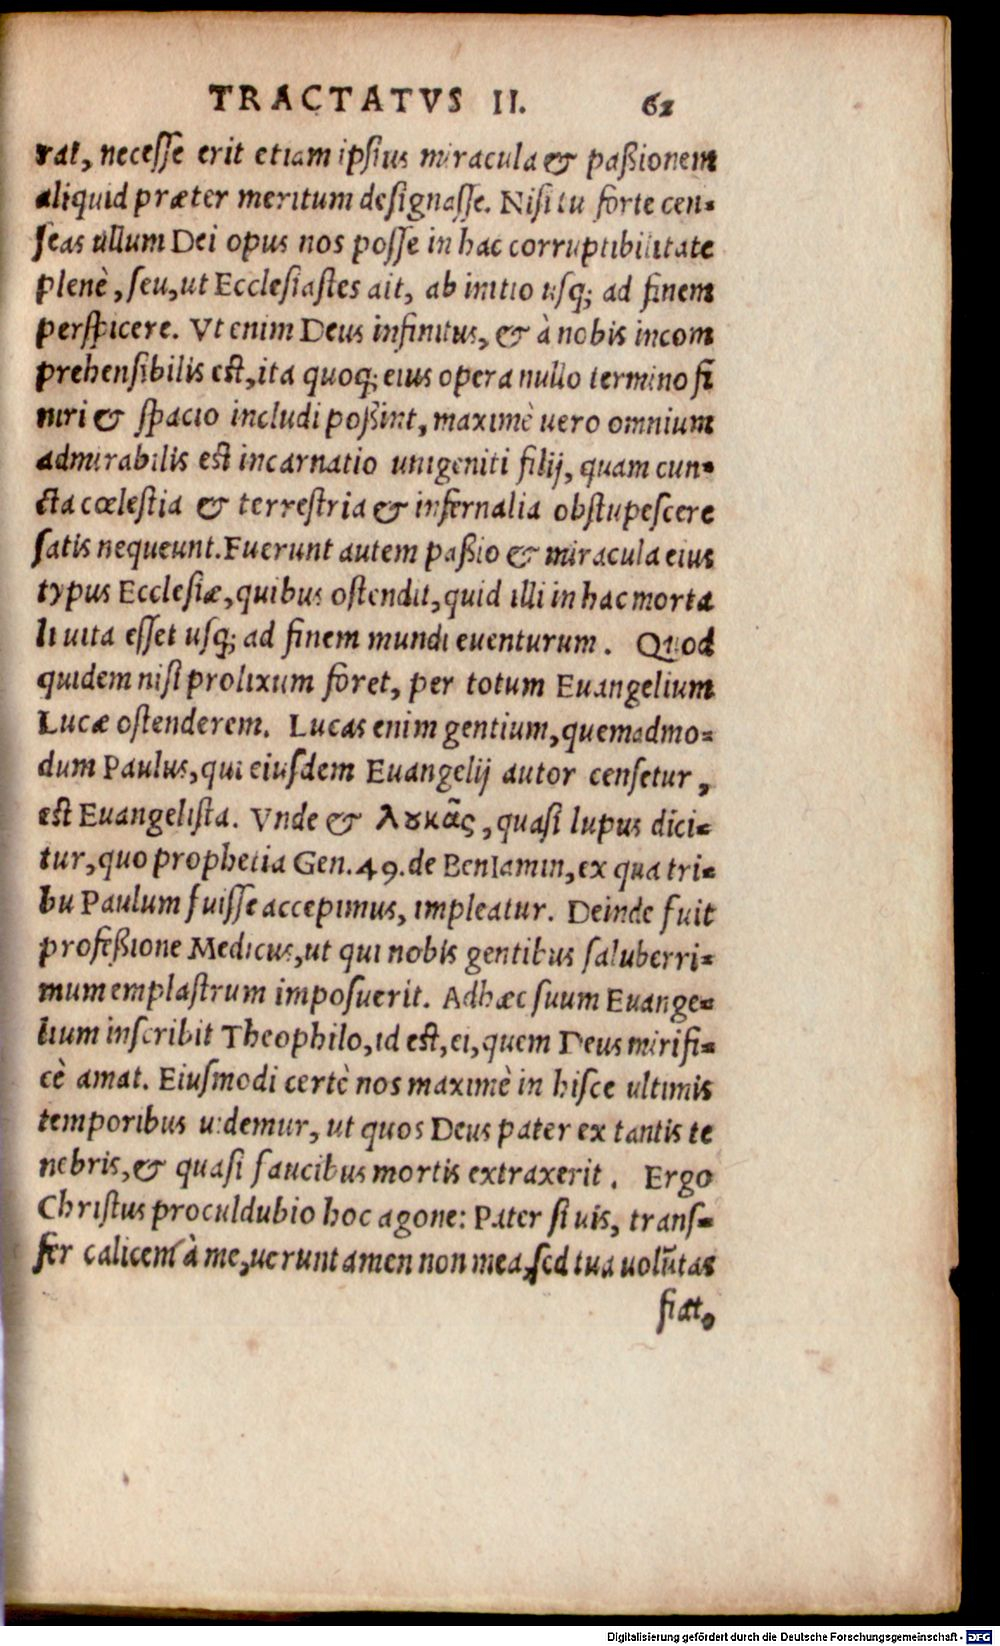 TRACTATVS II. 62
rat, necesse erit etiam ipsius miracula & paßionem
aliquid præter meritum designasse. Nisi tu forte cen-
seas ullum Dei opus nos posse in hac corruptibilitate
plenè, seu, ut Ecclesiastes ait, ab initio usq; ad finem
perspicere. Vt enim Deus infinitus, & à nobis incom
prehensibilis est, ita quoq; eius opera nullo termino fi
niri & spacio includi poßint, maximè uero omnium
admirabilis est incarnatio unigeniti filij, quam cun-
cta cœlestia & terrestria & infernalia obstupescere
satis nequeunt. Fuerunt autem paßio & miracula eius
typus Ecclesiæ, quibus ostendit, quid illi in hac morta
li uita esset usq; ad finem mundi euenturum. Quod
quidem nisi prolixum foret, per totum Euangelium
Lucæ ostenderem. Lucas enim gentium, quemadmo-
dum Paulus, qui eiusdem Euangelij autor censetur,
est Euangelista. Vnde & λουκᾶς, quasi lupus dici-
tur, quo prophetia Gen. 49. de BenIamin, ex qua tri-
bu Paulum fuisse accepimus, impleatur. Deinde fuit
profeßione Medicus, ut qui nobis gentibus saluberri-
mum emplastrum imposuerit. Adhæc suum Euange-
lium inscribit Theophilo, id est, ei, quem Deus mirifi-
cè amat. Eiusmodi certè nos maximè in hisce ultimis
temporibus uidemur, ut quos Deus pater ex tantis te
nebris, & quasi faucibus mortis extraxerit. Ergo
Christus proculdubio hoc agone: Pater si uis, trans-
fer calicem à me, ueruntamen non mea, sed tua uolūtas
fiat.
Digitalisierung gefördert durch die Deutsche Forschungsgemeinschaft - DFG